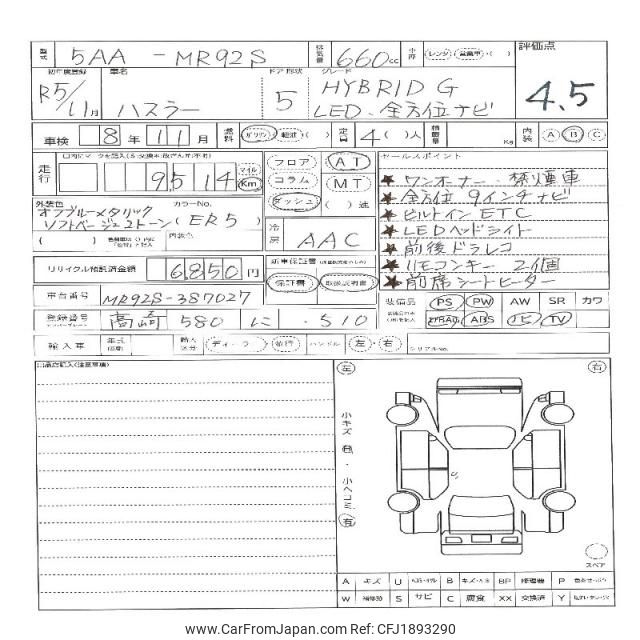 型式 5AA - MR92S 排気量 660cc 中務 レンジ 営業車・( 評価点
初年度登録 車名 ドア 形状 グレード
R5/11月 ハスラー 5 HYBRID G
LED・全方位ナビ
4.5
車検 8年 11月 燃料 ガソリン・軽油・( ) 定員 4( )人 積載量 Kg 内装 A B C
走行 9514 マイル Km
フロア コラム ダッシュ AT MT ( )速
セールスポイント
★ ワンオーナー・禁煙車
★ 全方位 9インチナビ
★ ビルトイン ETC
★ LEDヘッドライト
★ 前後ドラレコ
★ リモコンキー 2個
★ 前席シートヒーター
外装色 カラーNo.
オフブルーメタリック
ソフトベージュ2トーン (ER5)
内装色
冷房 AAC
リサイクル預託済金額 6,850円
新車保証書
保証書 取扱説明書
車台番号 MR92S-387027
装備品 PS PW AW SR カワ
ABS ナビ TV
登録番号 高崎 580 に ・510
輸入車 年式 輸入区分 ディーラー・並行 ハンドル 左・右 シリアルNo.
左 右
小キズ 有・小ヘコミ 有
スペア
A キズ U B キズ・ヘコ BP 修理機 P
W 補修跡 S サビ C 腐食 XX 交換済 Y
www.CarFromJapan.com Photo ID: CFJ1893290